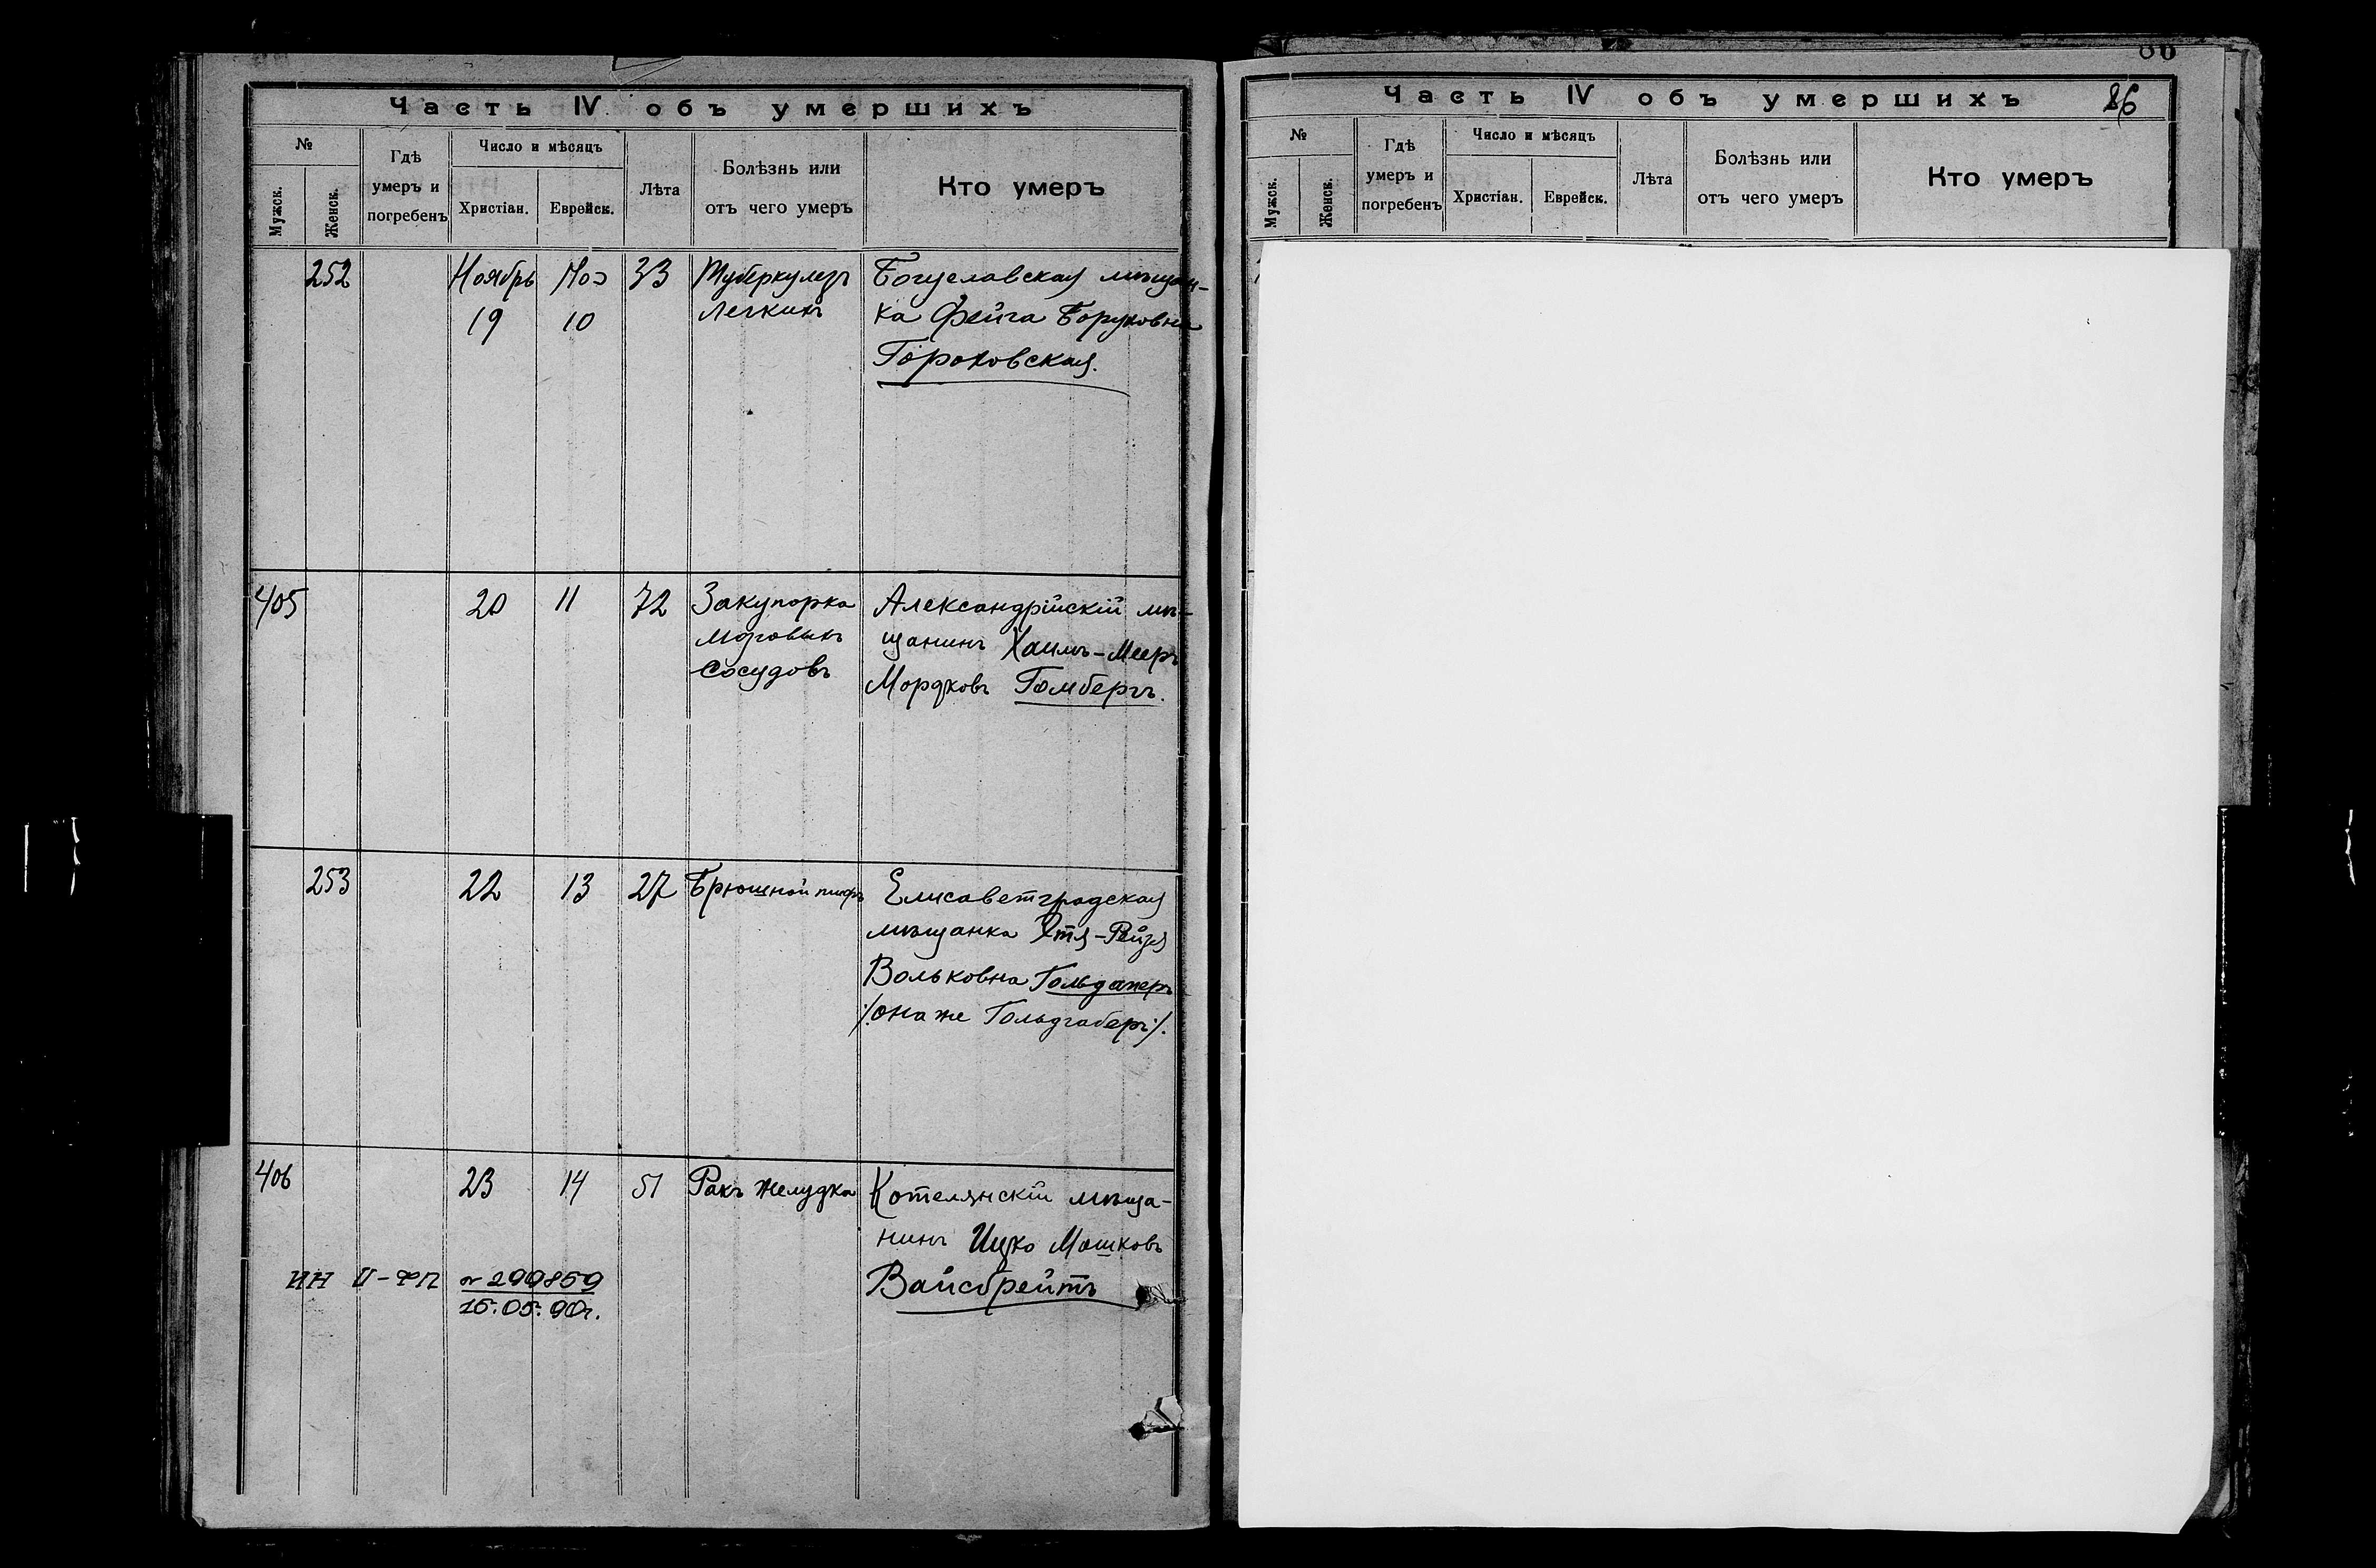 Часть IV объ умершихъ
№
Мужск.
Женск.
Гдѣ
умеръ и
погребенъ
Число и мѣсяцъ
Христіан.
Еврейск.
Лѣта
Болѣзнь или
отъ чего умеръ
Кто умеръ
252
Ноябрь
19
10
33
Туберкулезъ
легкихъ
Богуславская мѣщан-
ка Фейга Боруховна
Гороховская.
405
20
11
72
Закупорка
мозговыхъ
сосудовъ
Александрійскій мѣ-
щанинъ Хаимъ-Мееръ
Мордковъ Гомбергъ.
253
22
13
27
Брюшной тифъ
Елисаветградская
мѣщанка Этя-Рейзя
Вольковна
/:она же Гольдгаберъ:/.
406
23
14
51
Ракъ желудка
Котелянскій мѣща-
нинъ Ицко Мошковъ
Вайсбрейтъ
ИН II-ФП № 299859
15.05.90г.
86
Часть IV объ умершихъ
86
№
Мужск.
Женск.
Гдѣ
умеръ и
погребенъ
Число и мѣсяцъ
Христіан.
Еврейск.
Лѣта
Болѣзнь или
отъ чего умеръ
Кто умеръ